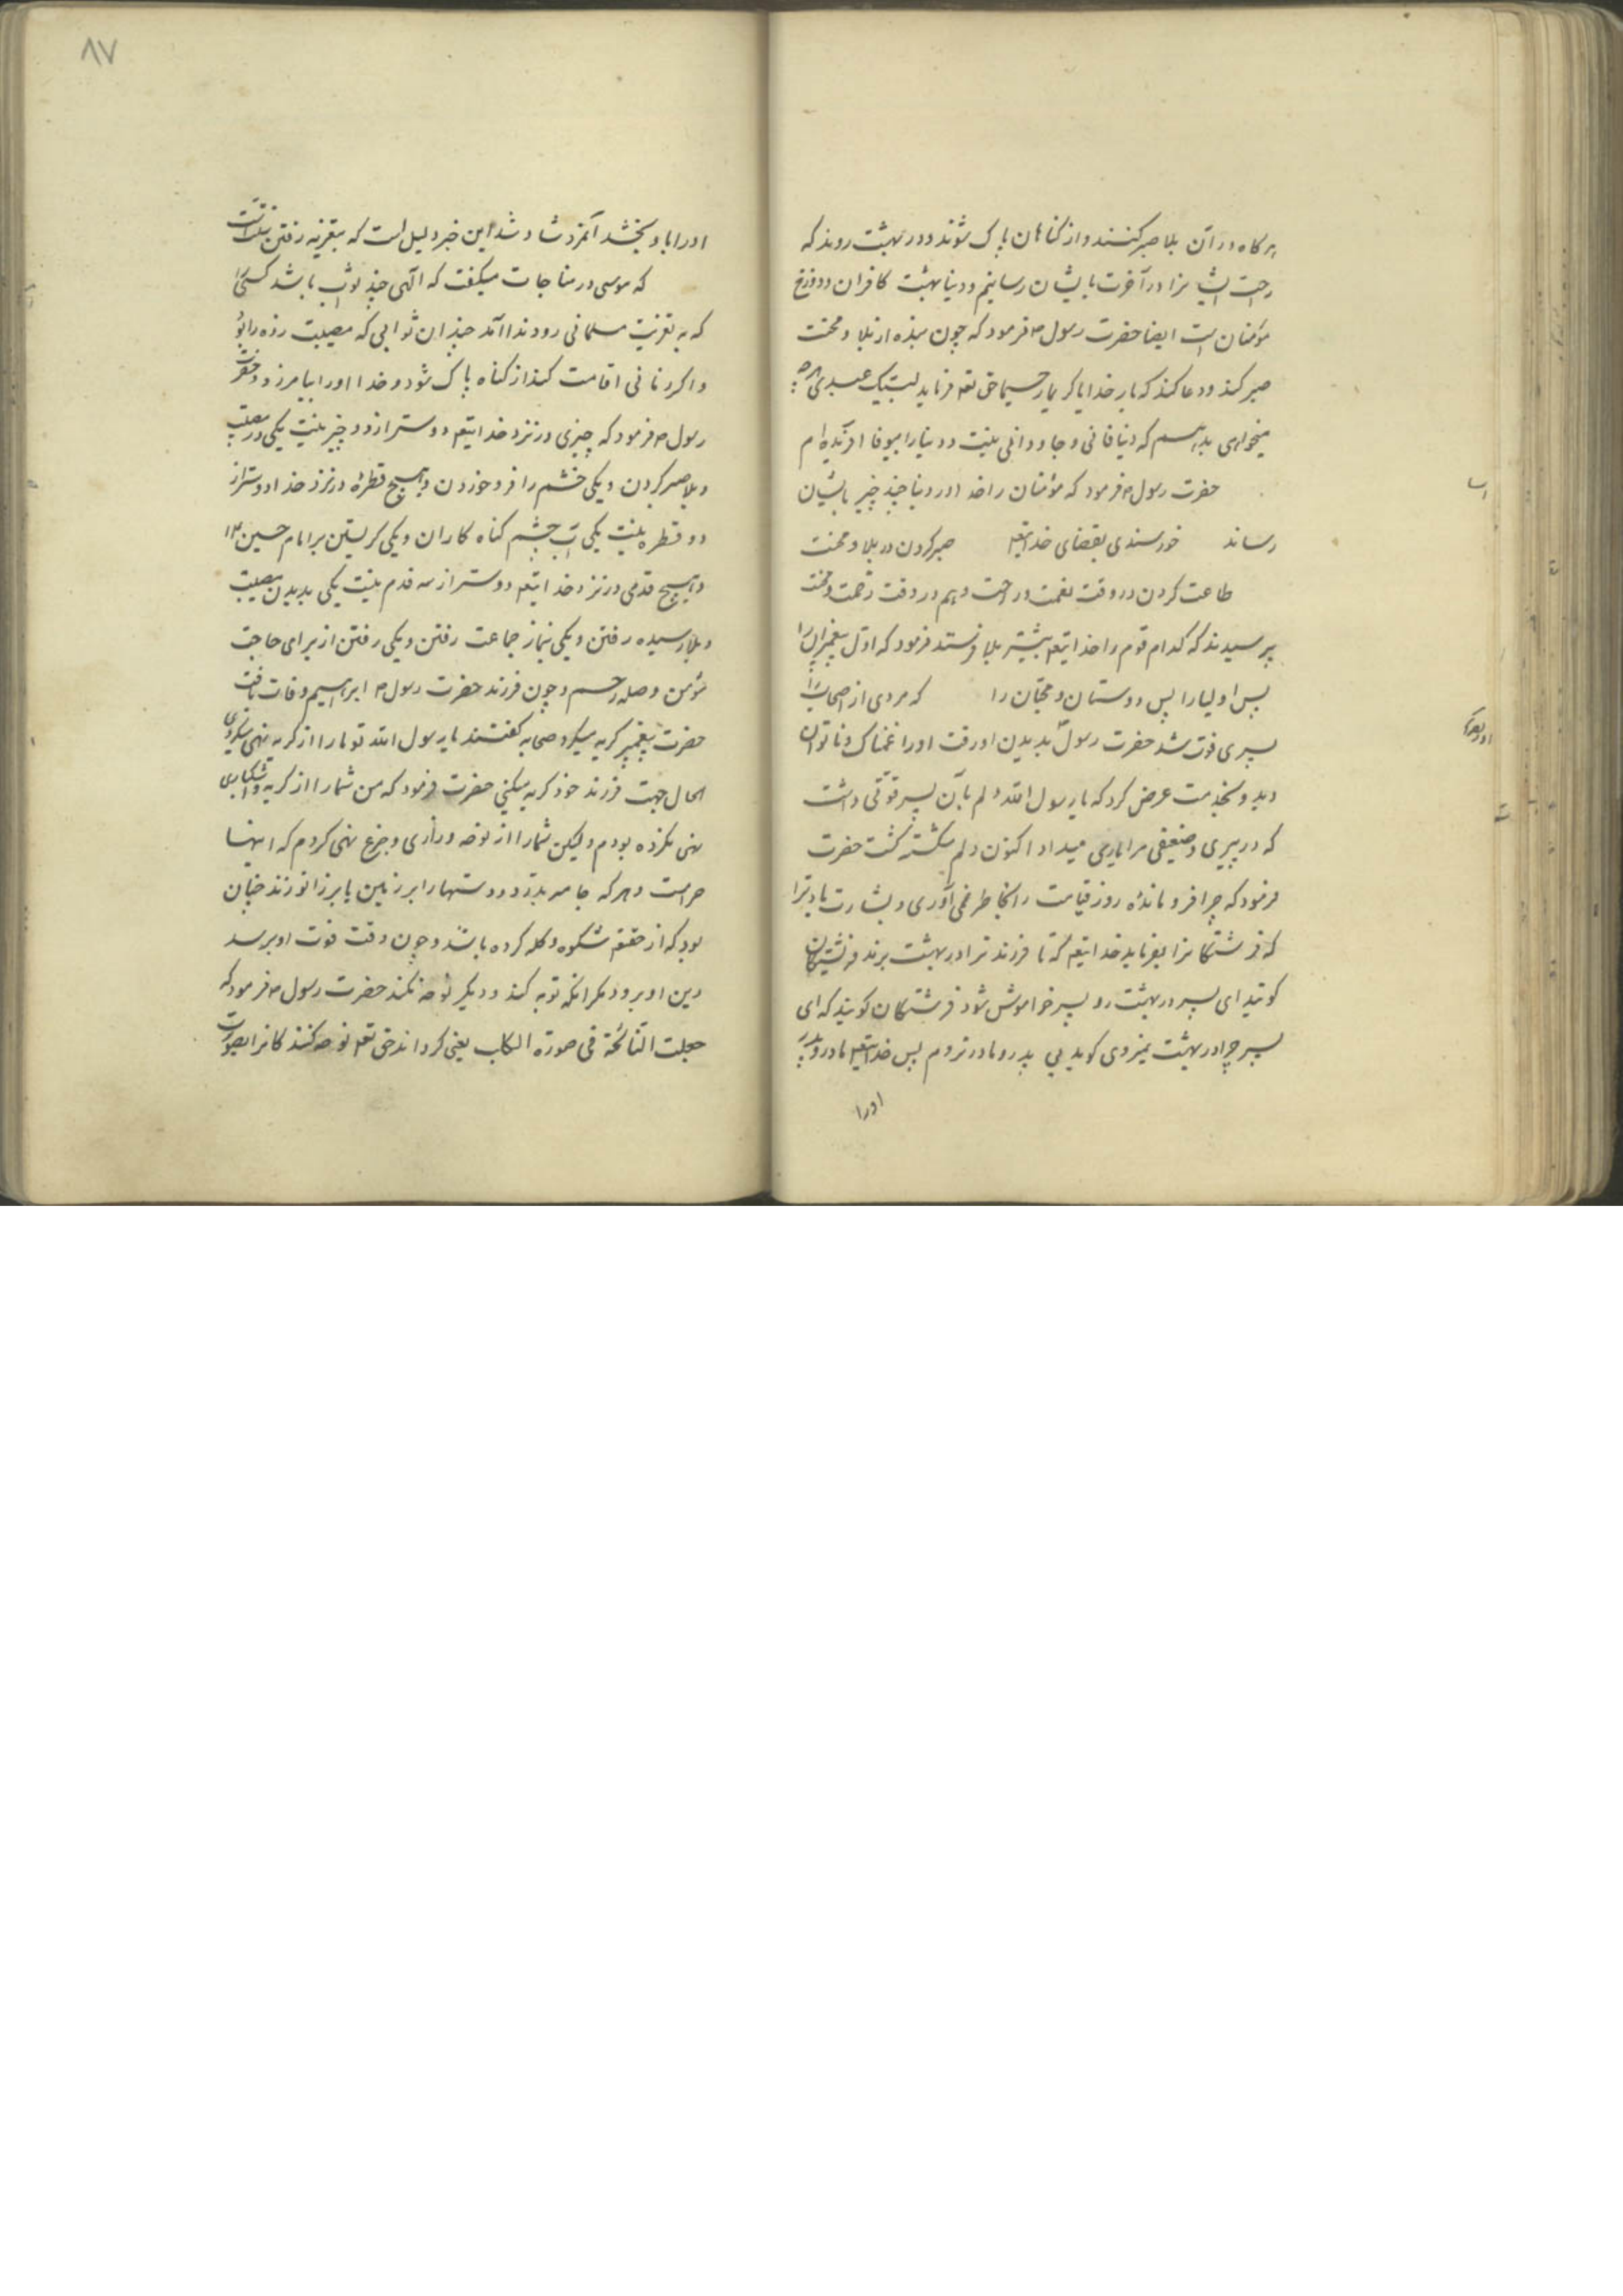 هرگاه در آن بلا صبر کنند و از گناهان پاک شوند و در بهشت روند که
راحت ایشانرا در آخرت بایشان رسانیم و دنیا بهشت کافران و دوزخ
مؤمنان است ایضا حضرت رسول ص فرمود که چون بنده از بلا و محنت
صبر کند و دعا کند که بار خدایا کریما رحیما حق تعه فرماید لبیک عبدی هرچه
میخواهی بدهم که دنیا فانی و جاودانی نیست و دنیا را بیوفا آفریده‌ام
حضرت رسول ص فرمود که مؤمنان را خدا در دنیا چند چیز بایشان
رساند خورسندی بقضای خدایتعه صبر کردن در بلا و محنت
طاعت کردن در وقت نعمت و راحت و هم در وقت زحمت و محنت
پرسیدند که کدام قوم را خدایتعه بیشتر بلا فرستد فرمود که اول پیغمبرانرا
پس اولیا را پس دوستان و محبّان را که مردی از اصحاب را
پسری فوت شد حضرت رسول ص بدیدن او رفت او را غمناک و ناتوان
دید و بخدمت عرض کرد که یا رسول الله دلم بآن پسر قوّتی داشت
که در پیری و ضعیفی مرا یاری میداد اکنون دلم شکسته گشت حضرت
فرمود که چرا فرو مانده روز قیامت را بخاطر نمی‌آوری و بشارت باد ترا
که فرشتگانرا بفرماید خدایتعه که تا فرزند ترا در بهشت برند فرشتگان
گویند ای پسر در بهشت رو پسر خواموش شود فرشتگان گویند که ای
پسر چرا در بهشت نمیروی گوید بی پدر و مادر نروم پس خدایتعه مادر و پدر
او را
۸۷
او را باو بخشد آنمرد شاد شد این خبر دلیل است که بتعزیه رفتن سنّت است
که موسی در مناجات میگفت که الهی چند ثواب باشد کسیرا
که به تعزیت مسلمانی رود ندا آمد چندان ثوابی که مصیبت زده را بود
و اگر زمانی اقامت کند از گناه پاک شود و خدا او را بیامرزد و حضرت
رسول ص فرمود که چیزی در نزد خدایتعه دوستر از دو چیز نیست یکی در مصیبت
و بلا صبر کردن و یکی خشم را فرو خوردن و هیچ قطره در نزد خدا دوستر از
دو قطره نیست یکی آب چشم گناه کاران و یکی گریستن بر امام حسین ع
و هیچ قدمی در نزد خدایتعه دوستر از سه قدم نیست یکی بدیدن مصیبت
و بلا رسیده رفتن و یکی نماز جماعت رفتن و یکی رفتن از برای حاجت
مؤمن و صله رحم و چون فرزند حضرت رسول ص ابراهیم وفات یافت
حضرت پیغمبر گریه میکرد صحابه گفتند یا رسول الله تو ما را از گریه نهی میکردی
الحال جهت فرزند خود گریه میکنی حضرت فرمود که من شما را از گریه و اشکباری
نهی نکرده بودم و لیکن شما را از نوحه و زاری و جزع نهی کردم که اینها
حرامست و هر که جامه بدرد و دستها را بر زمین یا بر زانو زند چنان
بود که از حقتعه شکوه و گله کرده باشد و چون وقت فوت او برسد
دین او برود مگر آنکه توبه کند و دیگر نوحه نکند حضرت رسول ص فرمود که
جعلت النائحة فی صورة الکلب یعنی گرداند حق تعه نوحه کنندگانرا بصورت